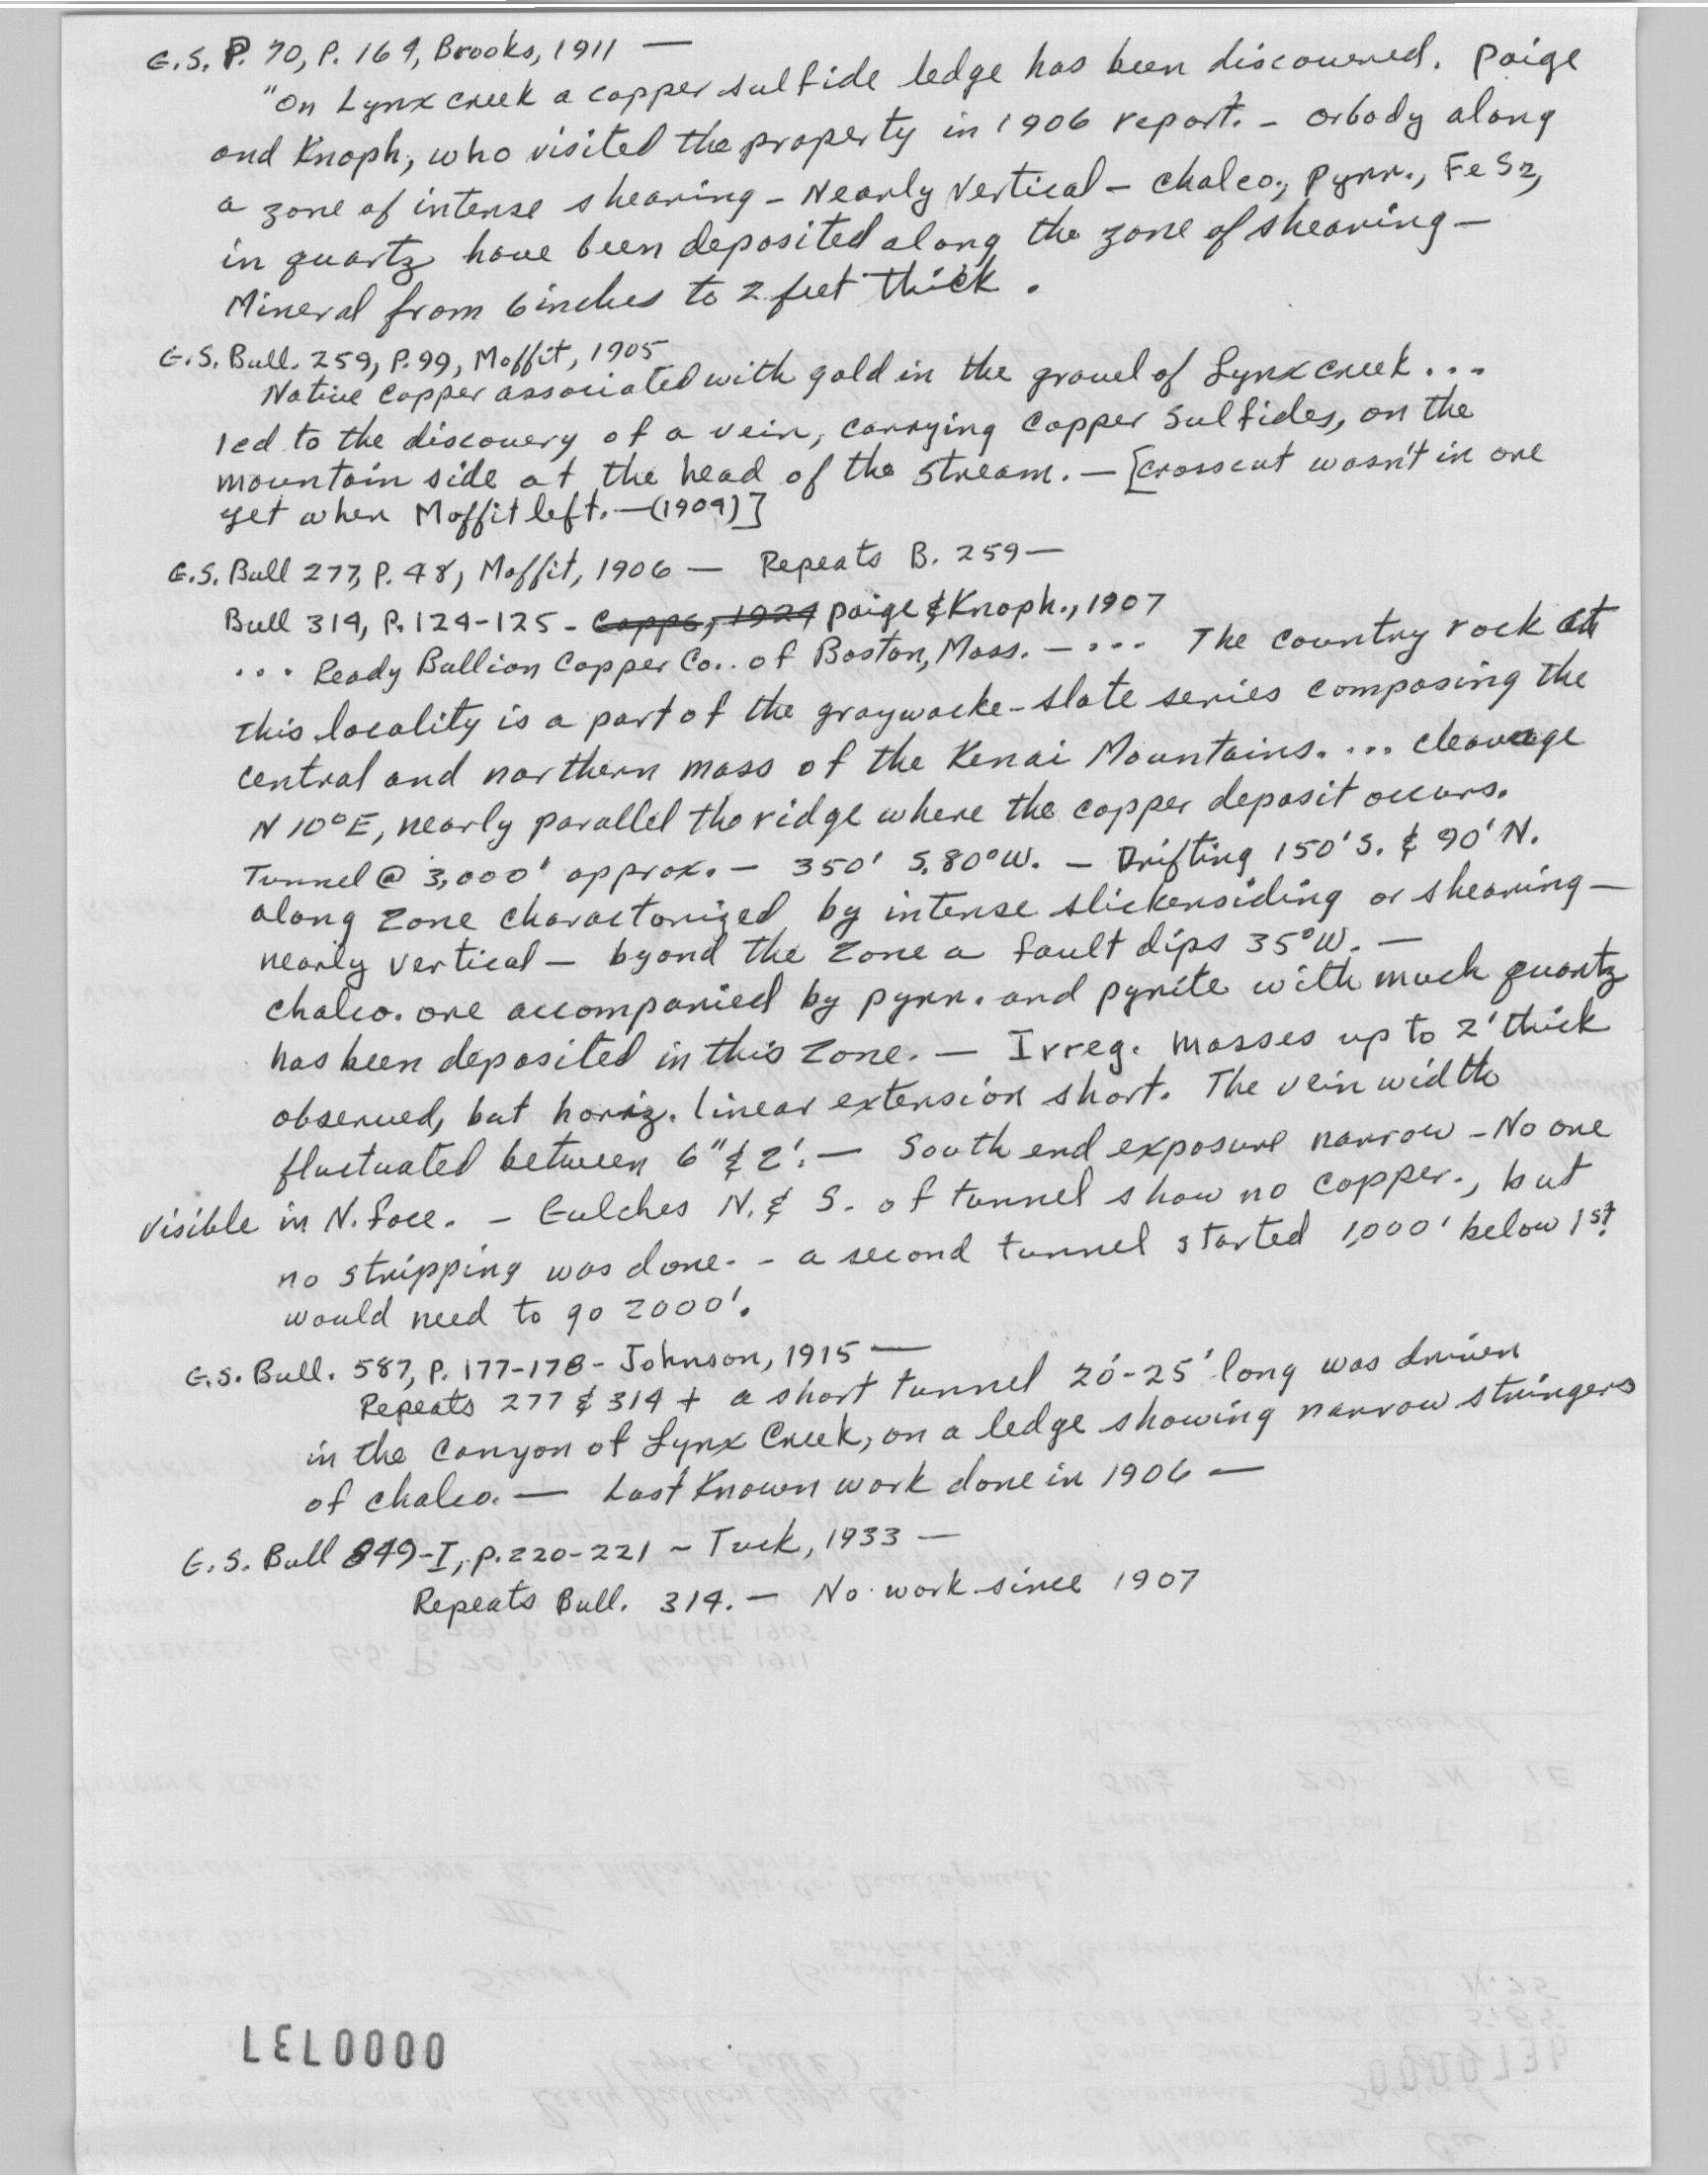 G.S. P. 70, P. 164, Brooks, 1911 —
"On Lynx creek a copper sulfide ledge has been discovered. Paige
and Knoph, who visited the property in 1906 report. - orbody along
a zone of intense shearing - Nearly Vertical - chalco., Pyrr., FeS2,
in quartz have been deposited along the zone of shearing -
Mineral from 6 inches to 2 feet thick.
G.S. Bull. 259, P. 99, Moffit, 1905
Native Copper associated with gold in the gravel of Lynx creek ...
led to the discovery of a vein, carrying copper sulfides, on the
mountain side at the head of the stream. — [crosscut wasn't in ore
yet when Moffit left. — (1904)]
G.S. Bull 277, P. 48, Moffit, 1906 — Repeats B. 259 —
Bull 314, P. 124-125 - Capps, 1924 Paige & Knoph., 1907
... Ready Bullion Copper Co.. of Boston, Mass. — ... The country rock at
this locality is a part of the graywacke-slate series composing the
central and northern mass of the Kenai Mountains. ... cleavage
N 10° E, nearly parallel the ridge where the copper deposit occurs.
Tunnel @ 3,000' approx. - 350' S. 80° W. - Drifting 150' S. & 90' N.
along zone charactorized by intense slickensiding or shearing -
nearly vertical - byond the zone a fault dips 35° W. -
chalco. ore accompanied by pyrr. and pyrite with much quartz
has been deposited in this zone. - Irreg. masses up to 2' thick
observed, but horiz. linear extension short. The vein width
fluctuated between 6" & 2'. - South end exposure narrow - No ore
visible in N. face. - Gulches N. & S. of tunnel show no copper., but
no stripping was done. - a second tunnel started 1,000' below 1st.
would need to go 2000'.
G.S. Bull. 587, P. 177-178 - Johnson, 1915 —
Repeats 277 & 314 + a short tunnel 20'-25' long was driven
in the Canyon of Lynx Creek, on a ledge showing narrow stringers
of chalco. — Last Known work done in 1906 —
G.S. Bull 849-I, P. 220-221 - Tuck, 1933 —
Repeats Bull. 314. - No work since 1907